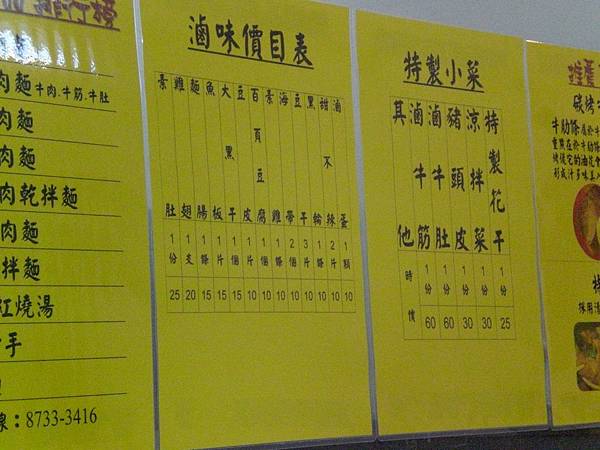 排行榜
肉麵 牛肉.牛筋.牛肚
肉麵
肉麵
肉乾拌麵
肉麵
拌麵
紅燒湯
手
線：8733-3416
滷味價目表
素肚 1份 25
雞翅 1支 20
麵腸 1條 15
魚板 1片 15
大黑干 1個 15
豆皮 1片 10
百頁豆腐 1個 10
素雞 1條 10
海帶 2個 10
豆干 3片 10
黑輪 1條 10
甜不辣 2片 10
滷蛋 1顆 10
特製小菜
其他 時價
滷牛筋 1份 60
滷牛肚 1份 60
豬頭皮 1份 30
涼拌菜 1份 30
特製花干 1份 25
推薦
碳烤
牛肋條
特
採用清